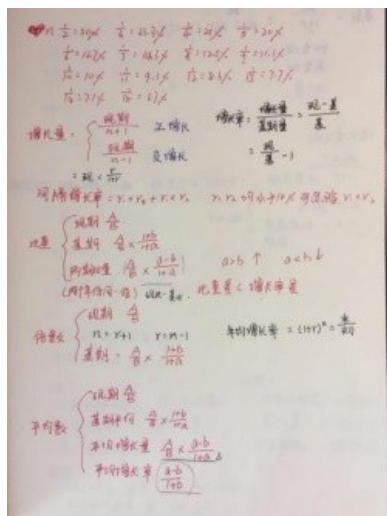 1/2=50% 1/3=33.3% 1/4=25% 1/5=20%
1/6=16.7% 1/7=14.3% 1/8=12.5% 1/9=11.1%
1/10=10% 1/11=9.1% 1/12=8.3% 1/13=7.7%
1/14=7.1% 1/15=6.7%
增长量= 现期/n+1 正增长
现期/n-1 负增长
=现×r/1+r
增长率=增长量/基期量=现-基/基
=现/基-1
间隔增长率=r₁+r₂+r₁×r₂
比重 现期 A/B
基期 A/B×1+b/1+a
两期比重 A/B×a-b/1+a a>b↑ a<b↓
比重差<增长率差
倍数 现期 A/B
n=r+1 r=n-1
基期=A/B×1+b/1+a
年均增长率=(1+r)ⁿ=
平均数 现期 A/B
基期平均 A/B×1+b/1+a
平均增长量 A/B×a-b/1+a
平均增长率 a-b/1+b